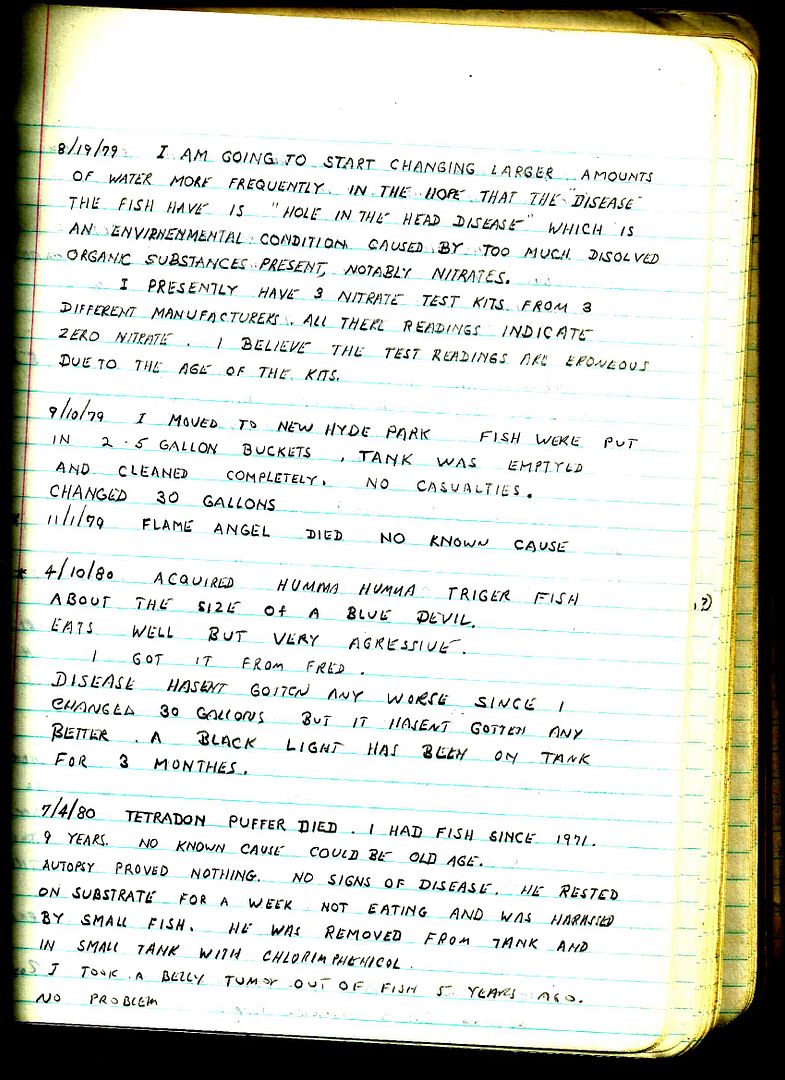 8/19/79 I AM GOING TO START CHANGING LARGER AMOUNTS
OF WATER MORE FREQUENTLY. IN THE HOPE THAT THE "DISEASE"
THE FISH HAVE IS "HOLE IN THE HEAD DISEASE" WHICH IS
AN ENVIRNENMENTAL CONDITION CAUSED BY TOO MUCH DISOLVED
ORGANIC SUBSTANCES PRESENT, NOTABLY NITRATES.
I PRESENTLY HAVE 3 NITRATE TEST KITS FROM 3
DIFFERENT MANUFACTURERS. ALL THERE READINGS INDICATE
ZERO NITRATE. I BELIEVE THE TEST READINGS ARE ERONEOUS
DUE TO THE AGE OF THE KITS.
9/10/79 I MOVED TO NEW HYDE PARK FISH WERE PUT
IN 2 - 5 GALLON BUCKETS, TANK WAS EMPTYED
AND CLEANED COMPLETELY. NO CASUALTIES.
CHANGED 30 GALLONS
11/1/79 FLAME ANGEL DIED NO KNOWN CAUSE
* 4/10/80 ACQUIRED HUMMA HUMMA TRIGER FISH
ABOUT THE SIZE OF A BLUE DEVIL.
EATS WELL BUT VERY AGRESSIVE.
I GOT IT FROM FRED.
DISEASE HASENT GOTTEN ANY WORSE SINCE I
CHANGED 30 GALLONS BUT IT HASENT GOTTEN ANY
BETTER. A BLACK LIGHT HAS BEEN ON TANK
FOR 3 MONTHES.
7/4/80 TETRADON PUFFER DIED. I HAD FISH SINCE 1971.
9 YEARS. NO KNOWN CAUSE COULD BE OLD AGE.
AUTOPSY PROVED NOTHING. NO SIGNS OF DISEASE. HE RESTED
ON SUBSTRATE FOR A WEEK NOT EATING AND WAS HARASSED
BY SMALL FISH. HE WAS REMOVED FROM TANK AND
IN SMALL TANK WITH CHLORIMPHENICOL.
I TOOK A BELLY TUMOR OUT OF FISH 5 YEARS AGO.
NO PROBLEM